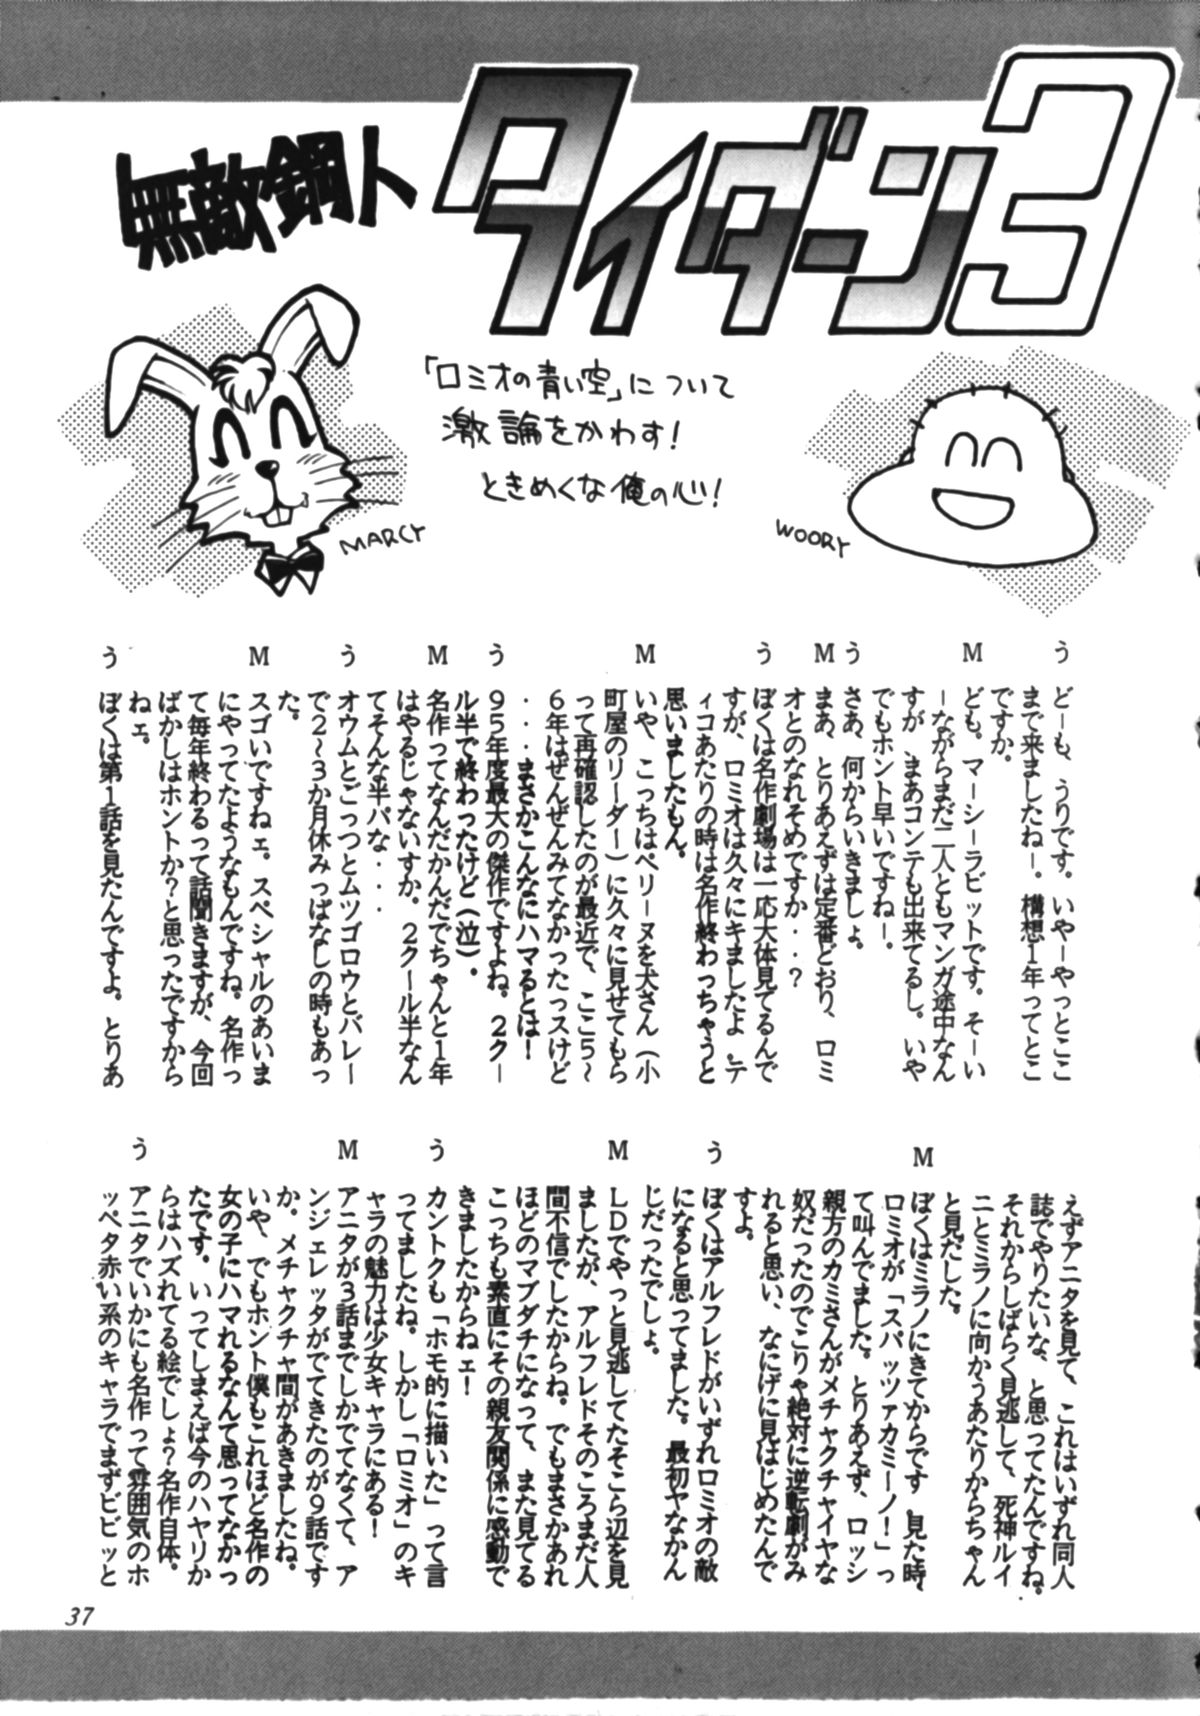 無敵鋼人
タイダーン3
「ロミオの青い空」について
激論をかわす!
ときめくな俺の心!
MARCY
WOORY
う どーも、うりです。いやーやっとここ
まで来ましたねー。構想1年ってとこ
ですか。
M ども、マーシーラビットです。そーい
ーながらまだ二人ともマンガ途中なん
すが、まあコンテも出来てるし。いや
でもホント早いですねー。
う さあ、何からいきましょ。
M まあ、とりあえずは定番どおり、ロミ
オとのなれそめですか・・?
う ぼくは名作劇場は一応大体見てるんで
すが、ロミオは久々にキましたよ。テ
ィコあたりの時は名作終わっちゃうと
思いましたもん。
M いや、こっちはペリーヌを犬さん(小
町屋のリーダー)に久々に見せてもら
って再確認したのが最近で、ここ5〜
6年はぜんぜんみてなかったっスけど
・・・まさかこんなにハマるとは!
う 95年度最大の傑作ですよね。2クー
ル半で終わったけど(泣)。
M 名作ってなんだかんだでちゃんと1年
はやるじゃないすか。2クール半なん
てそんな半パな・・・
う オウムとごっつとムツゴロウとバレー
で2〜3か月休みっぱなしの時もあっ
た。
M スゴいですねェ。スペシャルのあいま
にやってたようなもんですね。名作っ
て毎年終わるって話聞きますが、今回
ばかしはホントか?と思ったですから
ねェ。
う ぼくは第1話を見たんですよ。とりあ
えずアニタを見て、これはいずれ同人
誌でやりたいな、と思ってたんですね。
それからしばらく見逃して、死神ルイ
ニとミラノに向かうあたりからちゃん
と見だした。
M ぼくはミラノにきてからです。見た時、
ロミオが「スパッツァカミーノ!」っ
て叫んでました。とりあえず、ロッシ
親方のカミさんがメチャクチャイヤな
奴だったのでこりゃ絶対に逆転劇がみ
れると思い、なにげに見はじめたんで
すよ。
う ぼくはアルフレドがいずれロミオの敵
になると思ってました。最初ヤなかん
じだったでしょ。
M LDでやっと見逃してたそこら辺を見
ましたが、アルフレドそのころまだ人
間不信でしたからね。でもまさかあれ
ほどのマブダチになって、また見てる
こっちも素直にその親友関係に感動で
きましたからねェ!
う カントクも「ホモ的に描いた」って言
ってましたね。しかし「ロミオ」のキ
ャラの魅力は少女キャラにある!
M アニタが3話までしかでてなくて、ア
ンジェレッタがでてきたのが9話です
か。メチャクチャ間があきましたね。
いや、でもホント僕もこれほど名作の
女の子にハマれるなんて思ってなかっ
たです。いってしまえば今のハヤリか
らはハズれてる絵でしょ?名作自体。
う アニタでいかにも名作って雰囲気のホ
ッペタ赤い系のキャラでまずビビッと
37